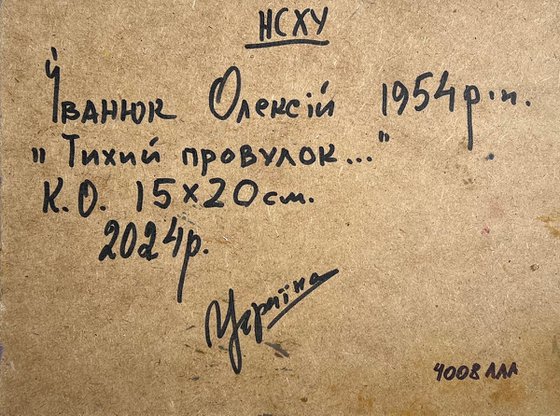 НСХУ
Іванюк Олексій 1954р.н.
"Тихий провулок..."
К.О. 15х20см.
2024р.
Україна
4008 ААА